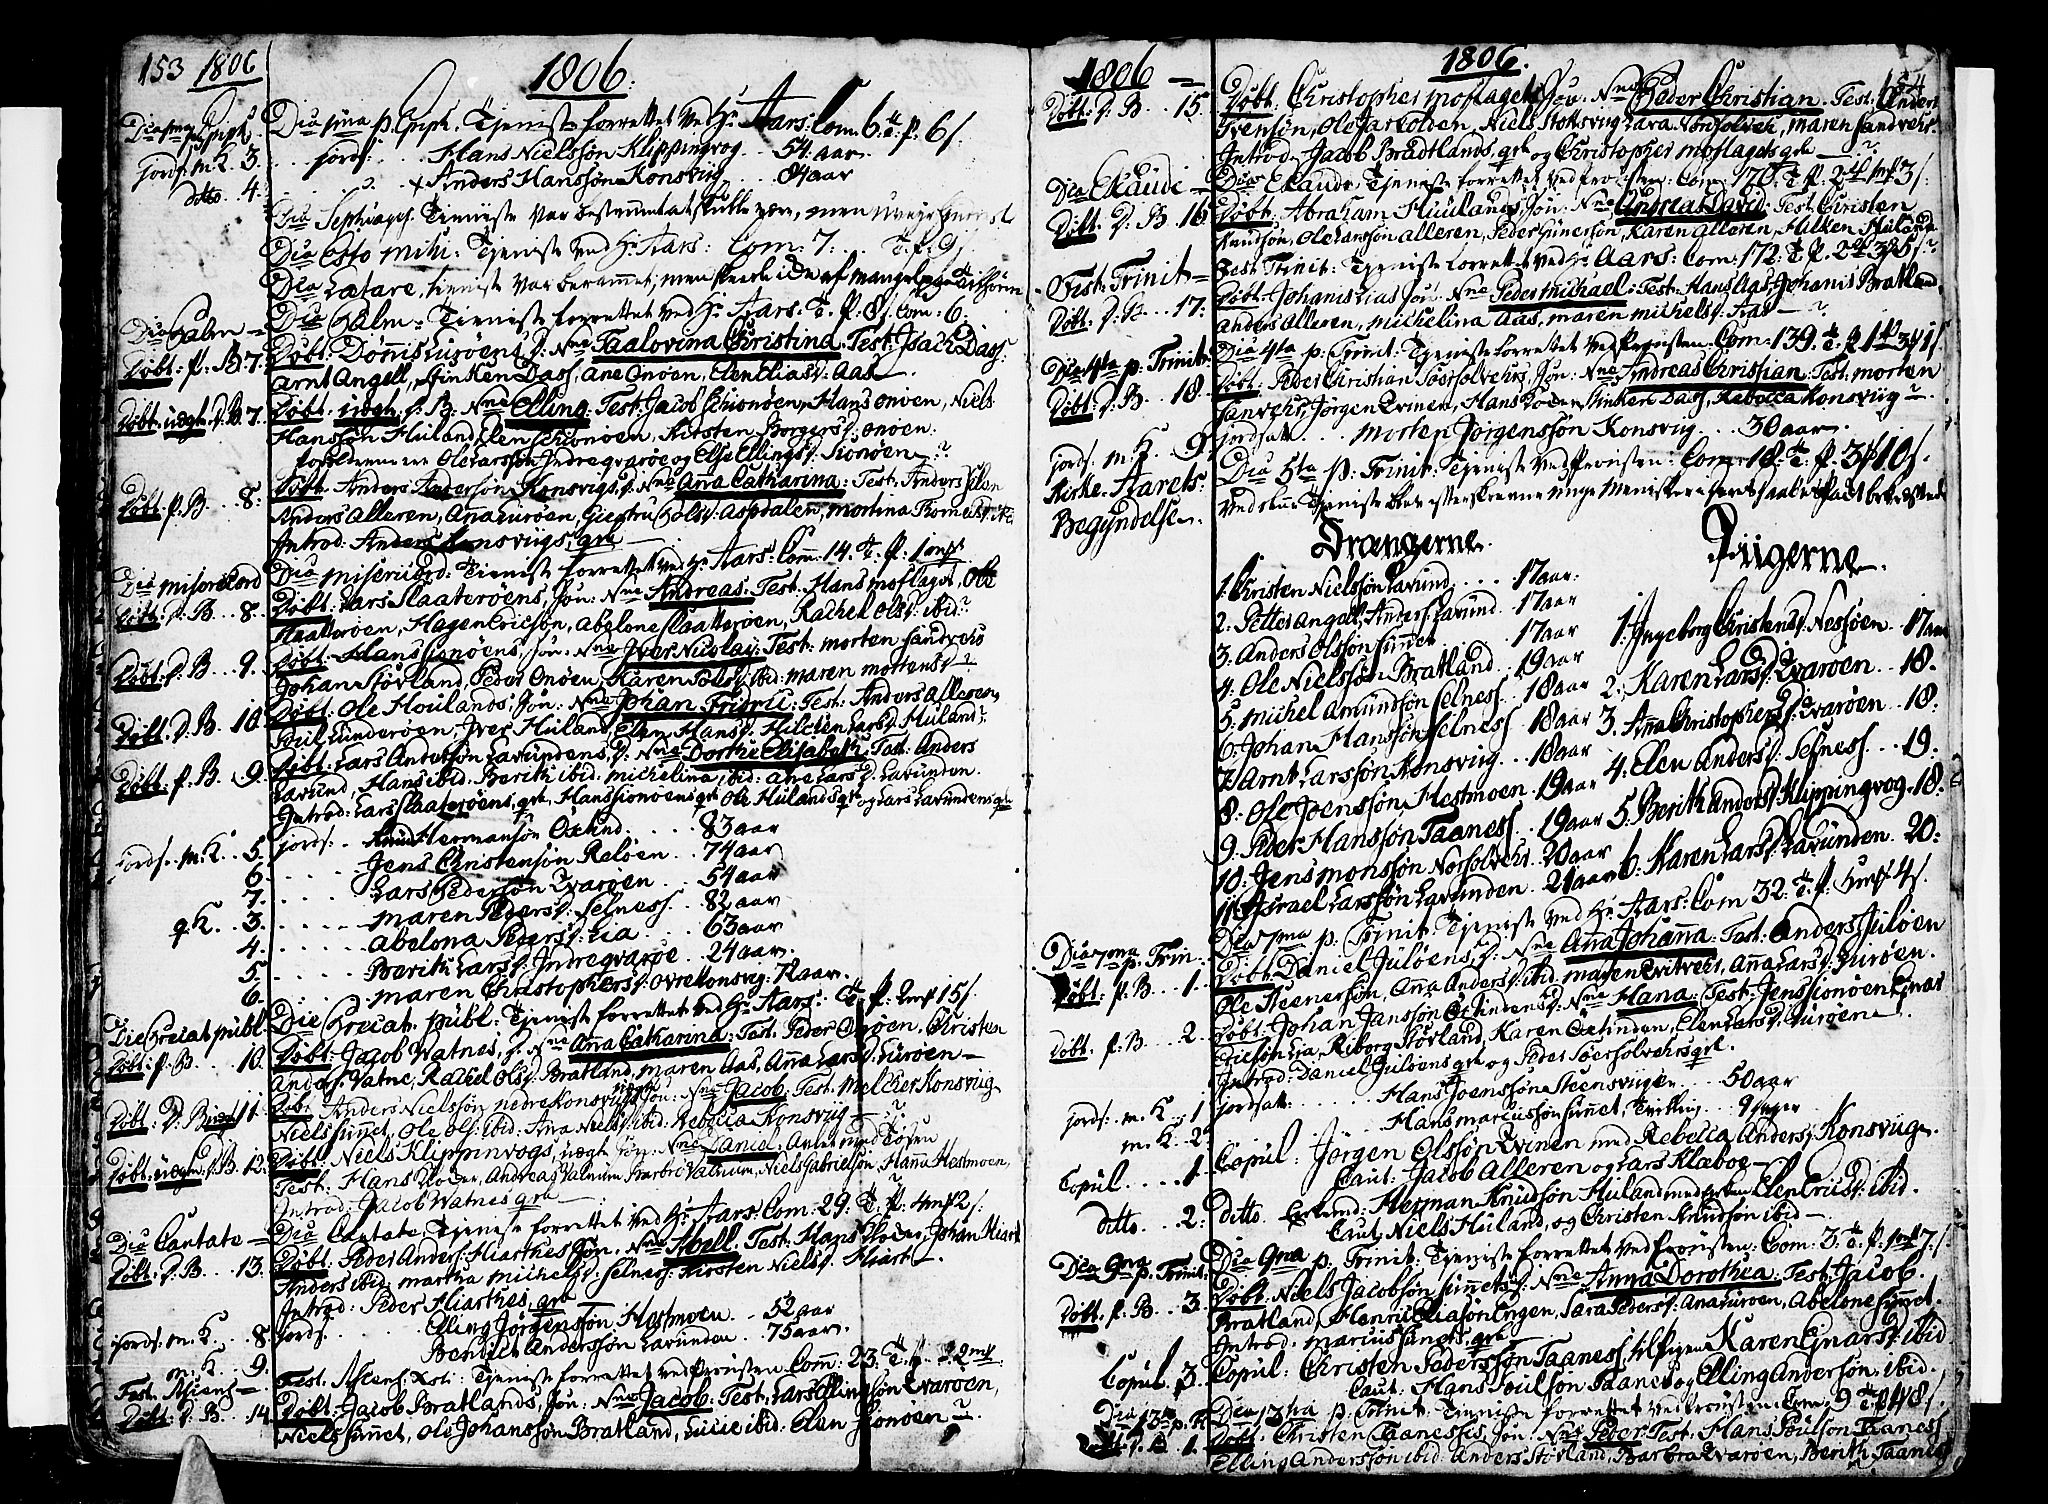 153 1806
1806.
Dia 1ma p. Epiph. Tjeniste forrettet ved Hr Aars: Com. 6. T. P. 6 s.
jords. m. K. 3. jords: Hans Nielssøn Klippingvog 54 aar
ditto 4. Anders Hanssøn Konsviig 84 aar
Dia Septuages. Tjeniste var bestemt at skulle være, men
Dia Esto mihi: Tjeniste ved Hr Aars: Com: 7: T. P. 9 s
Dia Lætare, tjeniste var berammet, men skeede icke af mangel paa
Dia Palm =
Dia Palm = Tjeniste forrettet ved Hr Aars. T. P. 8 s. Com: 6:
Døbt: P. B. 7. Døbt: Dønnis Lurøens P: Nne Taalovina Christina. Test: Isach Dass
Arnt Angell, Sinken Dass, Ane Onøen, Elen Elias D: Aas.
Døbt uægt. D. B. 7. Døbt: uægt. D. B: Nne Elling: Test: Jacob Sionøen, Hans Onøen, Niels
Hanssøn Huland, Elen Sionøen, Kirsten Borgers D: Onøen:
Forældrene ere Ole Larssøn Indregvarøe og Else Ellings D: Sionøen
Døbt. P. B. 8. Døbt. Anders Andersøn Konsvigs P. Nne Anna Catharina: Test: Anders
Anders Alleren, Ana Lurøen, Giertru Pols D: Aspdalen, Mortina
Introd: Anders Konsviigs qve
Dia Misericord
Dia Misericord: Tjeniste forrettet ved Hr Aars: Com: 14. T. P. 1 mk
Døbt: D. B. 8. Døbt: Lars Slaaterøens, Søn: Nne Andreas: Test: Hans Moflaget, Ole
Slaatterøen, Hagen Ericsøn, Abelone Slaatterøen, Rachel Ols D: ibid:
Døbt: D. B. 9. Døbt: Hans Sionøens, Søn: Nne Iver Nicolay: Test: Morten Sandvehrs
Johan Størland, Peder Onøen, Karen Pols D: ibid: Maren Mortens D:
Døbt. D. B. 10. Døbt: Ole Houlands, Søn: Nne Johan Fridric: Test: Anders Alleren
Poul Lunderøen, Iver Huland, Elen Hans D: Hilcken Lars D: Huland:
Døbt. P. B. 9. Døbt: Lars Andersøn Lavundens, P: Nne Dorthe Elisabeth: Test: Anders
Lavund, Hans ibid: Berith ibid: Michelina, ibid: Ane Lars D: Lavunden
Introd: Lars Slaaterøens qve, Hans Sionøens qve Ole Hulands qve og Lars Lavundens qve
jords. m. K. 5. jords: Knud Hermansøn Oxtind 83 aar
6. Jens Christensøn Reløen 74 aar
7. Lars Pedersøn Qvarøen 54 aar
q K. 3. Maren Peders D: Selness 82 aar
4. Abelona Peders D: Lia 63 aar
5. Berith Lars D: Indregvarøe 24 aar
6. Maren Christophers D: Ovrekonsvig 72 aar.
Die Precat. publ.
Die Precat. publ: Tjeniste forrettet ved Hr Aars: T. P. 2 mk 15 s.
Døbt: P. B. 10. Døbt: Jacob Watnes, P: Nne Anna Catharina: Test: Peder Onøen, Christen
Anders: Vatne, Rachel Ols D: Bratland, Maren Aas, Anna Lars D: Lurøen
Døbt: D. B. uægt 11. Døbt: Anders Nielssøn Nedrekonsviigs uægte Søn: Nne Jacob. Test: Melcher Konsviig
Niels Sunnet, Ole Ols: ibid: Ana Niels D: ibid: Rebecca Konsviig
Døbt: uægte D. B. 12. Døbt: Niels Klippinvogs, uægt Søn: Nne Daniel,
Test: Hans Loder, Andreas Valnum, Niels Gabrielsøn, Hanna Hestmoen,
Introd: Jacob Watnes qve
Dia Cantate
Dia Cantate Tjeniste forrettet ved Hr Aars: Com: 29: T. P. 4 mk 2 s.
Døbt: D. B. 13. Døbt: Peder Anders: Hiarthes Søn, Nne Abell: Test: Hans Loder, Johan Hiart
Anders ibid: Martha Michels D: Selness: Kirsten Niels D: Hiart
Introd: Peder Hiarthes, qve
jords. m. K. 8. jords. Elling Jørgenssøn Hestmoen 52 aar
m. K. 9. Bendict Anderssøn Lavunden 75 aar.
Fest. Ascens
Fest. Ascens. Xsti: Tjeniste forrettet ved Provsten Com: 23. T. P. 22 mk
Døbt: D. B. 14. Døbt: Jacob Bratlands, Søn: Nne Jacob: Test: Lars Ellingsøn Qvarøen,
Niels Sunnet, Ole Johanssøn Bratland, Lucie ibid: Elen Sionøen
1806 =
1806. 154
Døbt: D. B. 15. Døbt: Christopher Moflagets Søn: Nne Peder Christian. Test: Anders
Svensøn, Ole Jarholden, Niels Stottsviig Lara Norsolvehr, Maren Sandvehr.
Introd: Jacob Bradtlands qve og Christopher Moflagets qve
Dia Exaudi =
Dia Exaudi: Tjeniste forrettet ved Provsten: Com: 170: T. P. 2 4 mk 3 s:
Døbt: D. B. 16 Døbt: Abraham Huulands Søn: Nne Andreas David: Test: Christen
Knudsøn, Ole Larssøn Alleren, Peder Einersøn, Karen Alleren, Malken Huland
Fest: Trinit =
Fest Trinit: Tjeniste forrettet ved Hr Aars: Com: 172: T. P. 2
Døbt: D. B. 17: Døbt: Johanis Lias Søn: Nne Peder Michael: Test: Hans Aas, Johanis Bratland
Anders Alleren, Michelina Aas, Maren Michels D: Aas
Dia 4ta p. Trinit:
Dia 4ta p: Trinit: Tjeniste forrettet ved Provsten: Com: 139. T. P.
Døbt: D. B. 18 Døbt: Peder Christian Sørsolvehrs, Søn: Nne Andreas Christian. Test: Morten
Sanvehr, Jørgen Qvinen, Hans Loder, Sinken Dass, Rebecca Konsviig
jords. m. K. 9. jordsatt Morten Jørgenssøn Konsviig 30 aar
Dia 5ta p: Trinit: Tjeniste ved Provsten: Com: 18: T. P. 3 10 s.
Kirke-Aarets
Begyndelse
Drængerne. Piigerne.
1. Christen Nielssøn Lavund 17 aar.
2. Petter Angell Anders: Lavund 17 aar
3. Anders Olssøn Sunnet 17 aar
4. Ole Nielssøn Bratland 19 aar
5. Michel Amundsøn Selness 18 aar
6. Johan Hanssøn Selness 18 aar
7. Arnt Larssøn Konsviig 18 aar
8. Ole Joenssøn Hestmoen 19 aar
9. Peder Hanssøn Taaness 19 aar
10. Jens Monssøn Norsolvehr 20 aar
11. Israel Larssøn Lavunden 21 aar
1. Ingeborg Christens D: Nessøen 17 aar
2. Karen Lars D: Qvarøen 18.
3. Anna Christophers D: Qvarøen 18.
4. Elen Anders D: Selness 19.
5. Berith Anders D: Klippingvog 18.
6. Karen Lars D: Lavunden 20.
Dia 7ma p. Trin
Dia 7ma p: Trinit: Tjeniste ved Hr Aars: Com 32: T. P. 4 s.
Døbt: P. B. 1. Døbt: Daniel Juløens, P: Nne Anna Johanna: Test: Anders Juløen
Ole Steenersøn, Anna Anders D: ibid: Maren Qvitvehr, Anna Lars D: Lurøen.
Døbt: P. B. 2. Døbt: Johan Janssøn Oxtindens P: Nne Hana: Test: Jens Sionøen, Einar
Lia, Riborg Størland, Karen Oxtinden, Elen Lars D: Lurøen
Introd: Daniel Juløens qve og Peder Sørsolvehrs qve.
jords. m. K. 1 jordsatt: Hans Joenssøn Steensviigen 50 aar
m. K. 2 Hans Mariussøn Sunnet, Tvilling 9 uger
Copul 1 Copul: Jørgen Olssøn Qvinen med Rebecca Anders D: Konsviig.
Caut: Jacob Alleren og Lars Klæboe
ditto 2: ditto Herman Knudsøn Huland med Elen Erics D: ibid.
Caut: Niels Huland, og Christen Knudsøn ibid
Dia 9na p. Trinit:
Dia 9na p: Trinit: Tjeniste forrettet ved Provsten: Com: 3. T. P. 7 s.
Døbt: P. B. 3. Døbt: Niels Jacobsøn Sunnets P: Nne Anna Dorothea: Test: Jacob
Bratland, Henric Engen, Sara Peders D: Ana Lurøen, Abelone Sunnet.
Introd: Marcus Sunets qve
Copul. 3. Copul: Christen Pederssøn Taaness, til Pigen Karen Ejnars D: ibid
Caut: Hans Poulsøn Taanes og Elling Andersøn ibid.
Dia 13 p. Tr
Dia 13tia p: Trinit: Tjeniste forrettet ved Provsten: Com: 9
Døbt: Christen Taanessis, Søn: Nne Peder: Test: Hans Poulson Taaness
Elling Anderssøn ibid: Anders Størland, Barbra Qvarøen, Berith Taaness